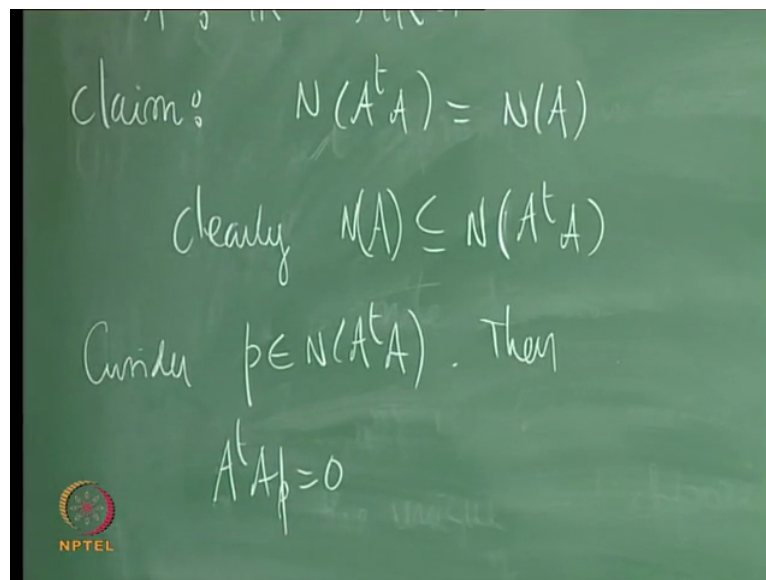 Claim: N(AᵗA) = N(A)
Clearly N(A) ⊆ N(AᵗA)
Consider p ∈ N(AᵗA). Then
AᵗAp = 0
NPTEL